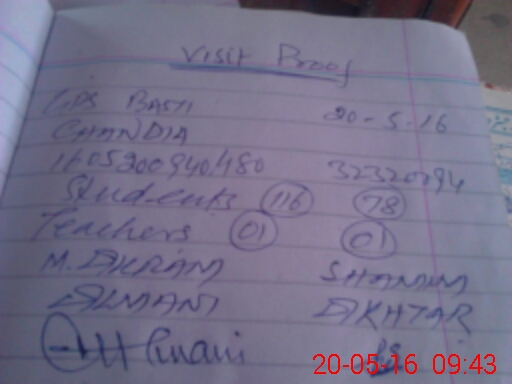 Visit Proof
GPS BASTI 20-5-16
CHANDIA
1605200940480 32320294
Students 116 78
Teachers 01 01
M. AKRAM SHAMIM
ALMANI AKHTAR
20-05-16 09:43